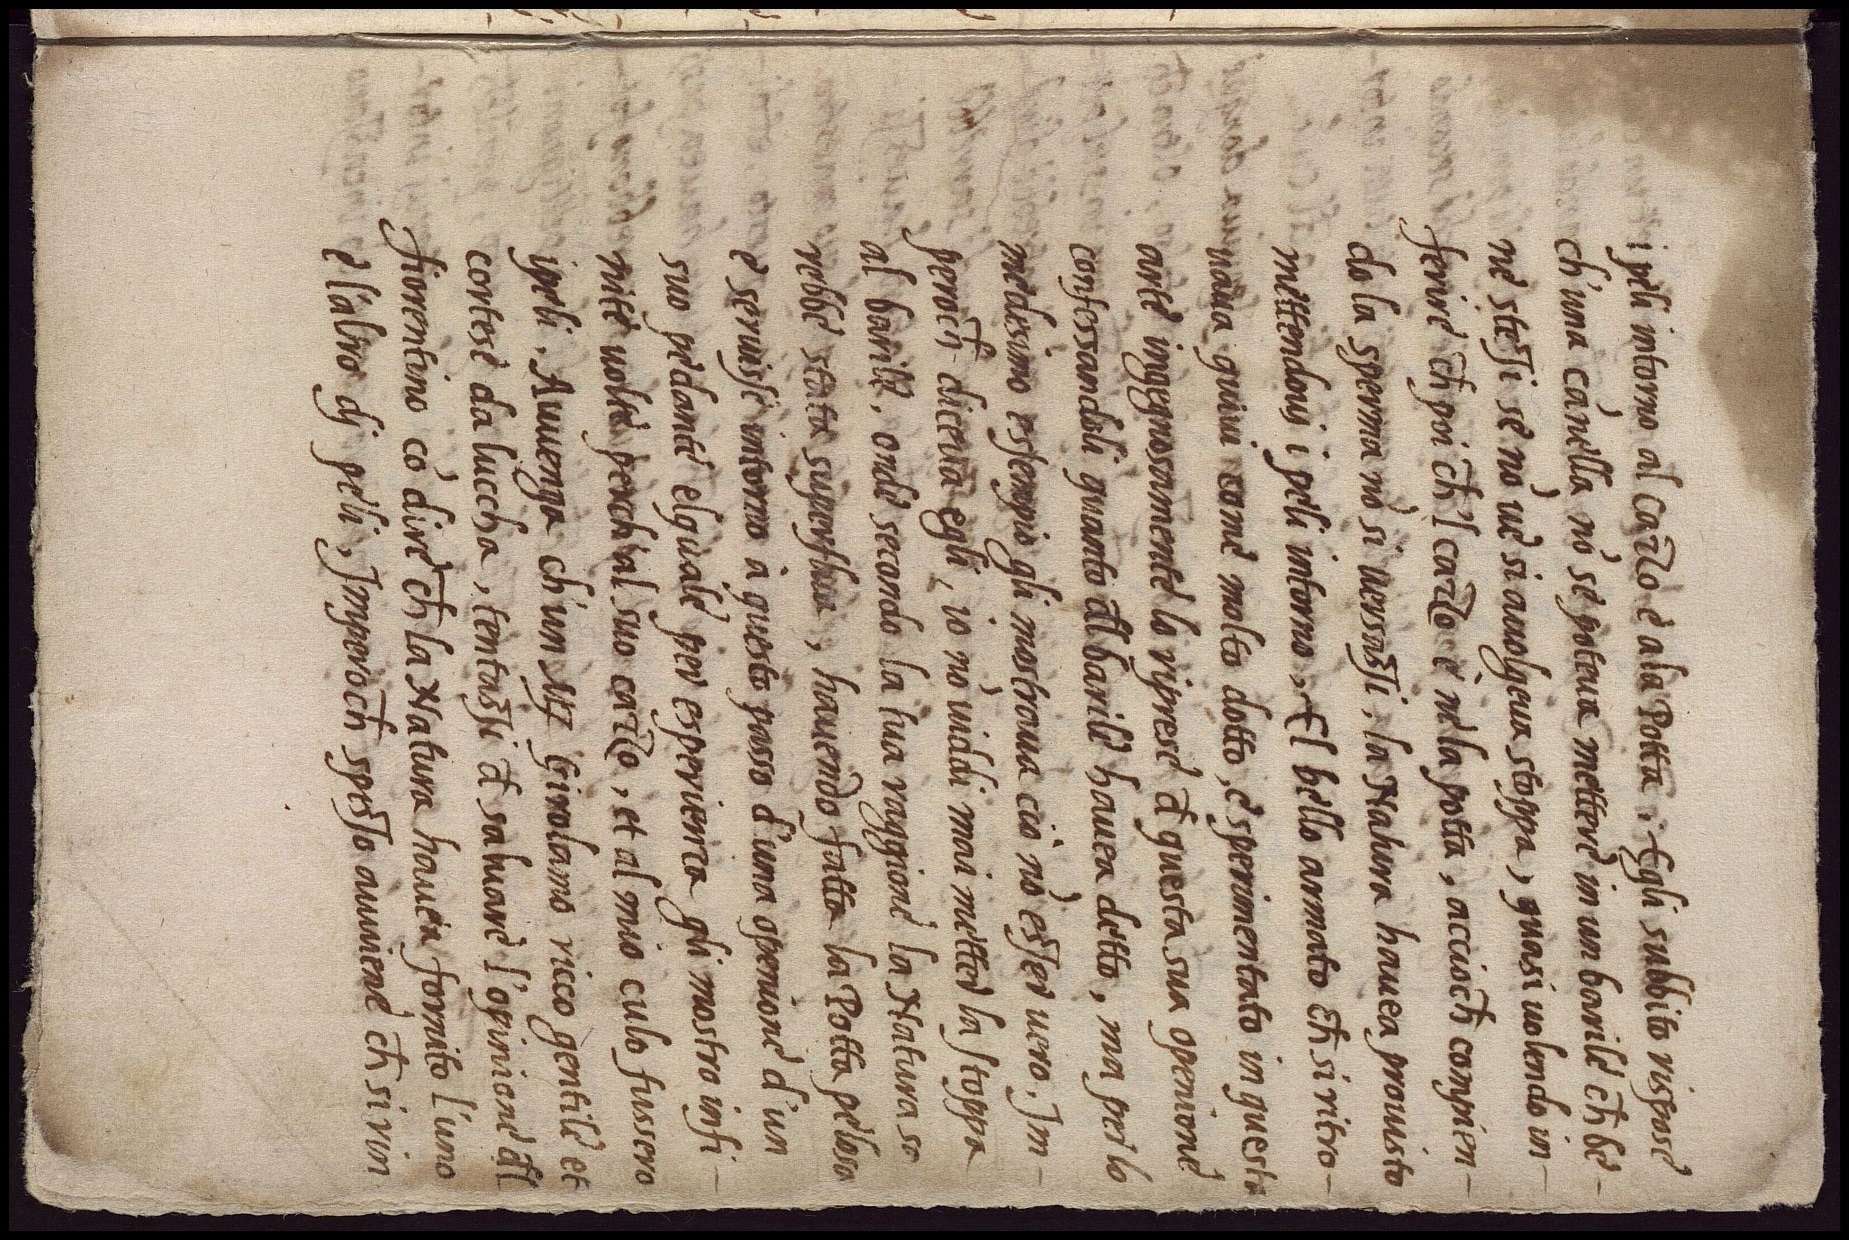 i peli intorno al Cazzo è a la Potta. Egli subbito rispose
ch'una canella nō se poteua mettere in un barile ch̄ bē-
ne stessi se nō ue si auolgeua stoppa, quasi uolendo in-
ferire ch̄ poi ch̄'l cazzo è nē la potta, accioch̄ compien-
do la sperma nō si uersassi, la Natura hauea prouisto
mettendoui i peli intorno, El bello armato ch̄ si ritro-
uaua quiui come molto dotto, e sperimentato in questa
arte ingegnosamente lo riprese d̄ questa sua openione
confessandoli quanto d̄l barile hauea detto, ma per lo
medesimo essempio gli mostraua ciò nō esser uero. Im-
peroch̄ diceua egli, io nō uiddi mai metter la stoppa
al barile, onde secondo la tua raggione la Natura sa
rebbe stata superflua, hauendo fatta la Potta pelosa
e seruissi intorno à questo passo d'una openione d'un
suo pedante el quale per esperienza gli mostro infi-
nite uolte perch'al suo cazzo, et al mio culo fussero
i peli. Auuenga ch'un Mr̄ Girolamo ricco gentile et
cortese da luccha, tentassi d̄ saluare l'opinione d̄l
fiorentino cō dire ch̄ la Natura hauea fornito l'uno
e l'altro dj peli, Imperoch̄ spesso auuiene ch̄ si rin